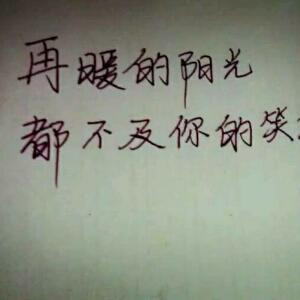 再暖的阳光
都不及你的笑